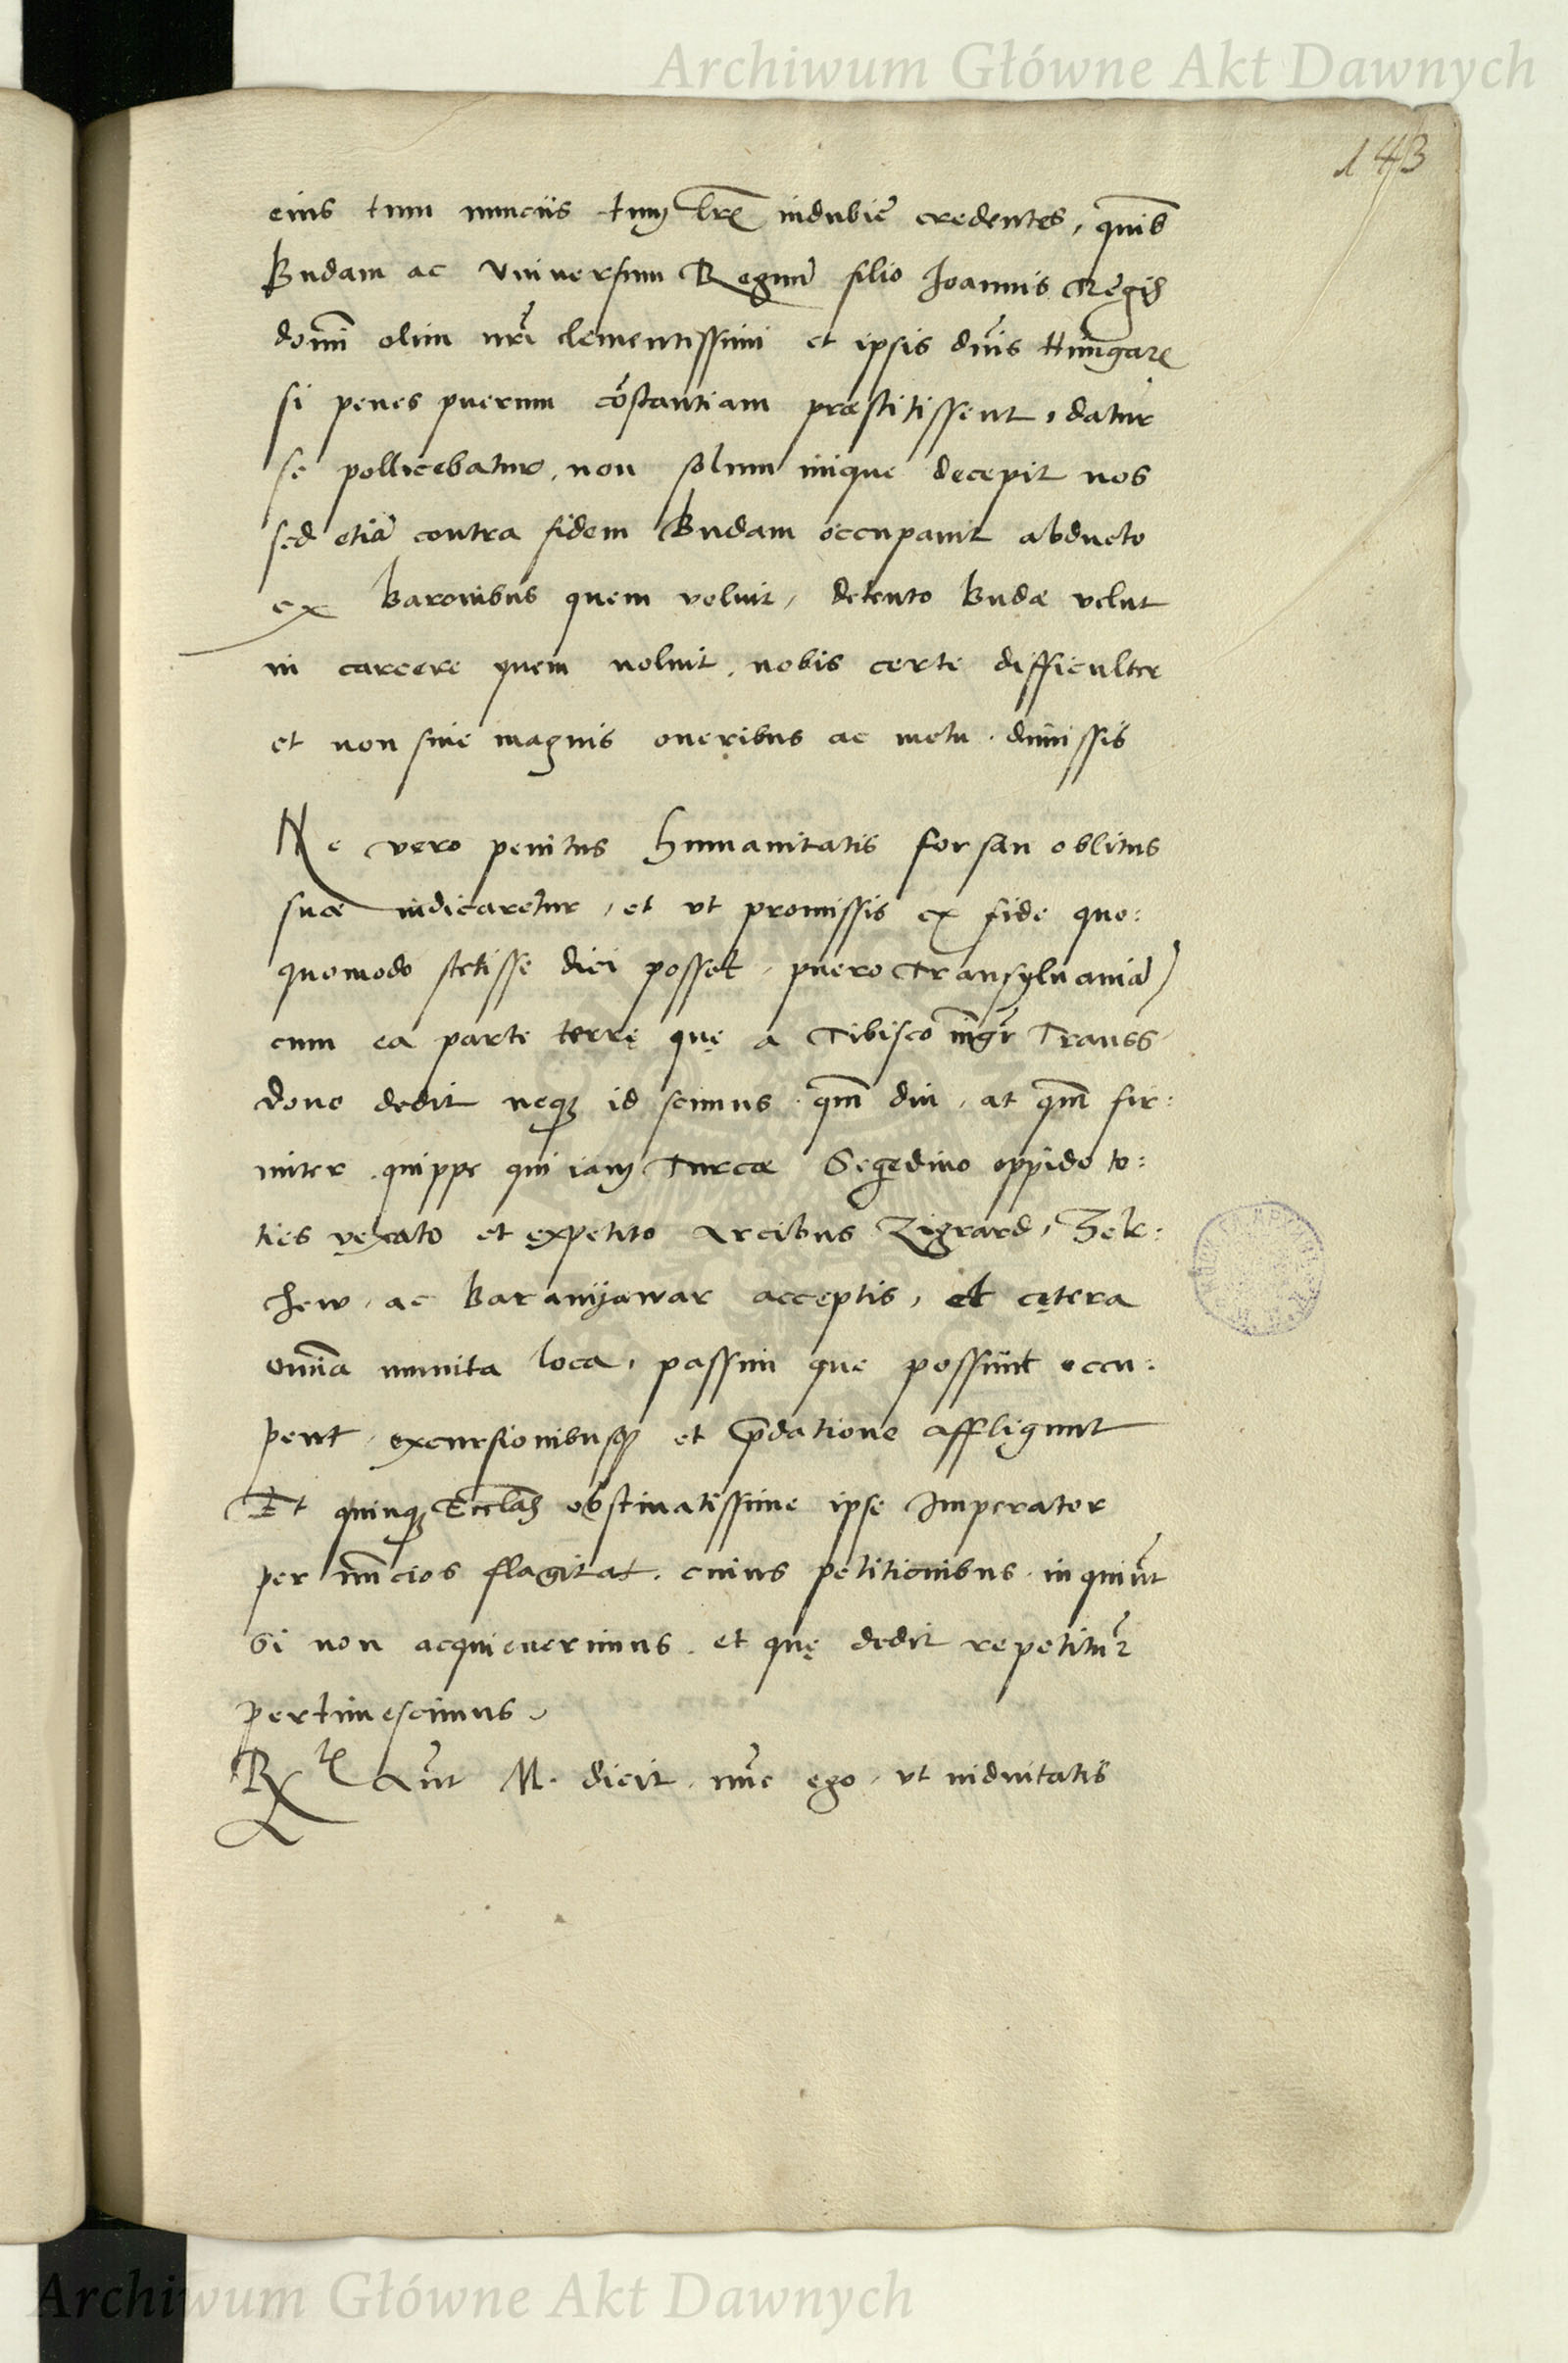 Archiwum Główne Akt Dawnych
143
eius tum nunciis tum lrẽ indubiẽ credentes, quib
Budam ac Vniuersum Regnũ filio Joannis Regis
domĩ olim nrĩ clementissimi et ipsis dnĩs Hungarẽ
si penes puerum cõstantiam præstitissent, datur
se pollicebatur, non solum inique decepit nos
sed etiã contra fidem Budam occupauit abducto
ex baronibus quem voluit, detento Budæ velut
in carcere quem noluit, nobis certe difficulter
et non sine magnis oneribus ac metu dimissis
Ne vero penitus humanitatis forsan oblitus
suæ iudicaretur, et vt promissis ex fide quo:
quomodo stetisse dici posset, puero Transyluaniã
cum ea parte terrę quę a Tibisco Transs
dono dedit neqꝫ id scimus qm̃ diu, at qm̃ fir:
miter quippe qui iam Turcæ Segedino oppido to:
ties vexato et expetito Arcibus Zigrard, Zek:
chew, ac Baranijawar acceptis, et cętera
omĩa munita loca, passim que possunt occu:
pent, excursionibusqꝫ et p̃datione affligunt
Et quinqꝫ Eccl̃as obstinatissime ipse Imperator
per nũcios flagitat, cuius petitionibus inquiũt
Si non acquieuerimus, et quę dedit repetitur̃
pertimescimus.
Rtẽ Aũt M. dicit, nũc ego, vt uiduitatis
Archiwum Główne Akt Dawnych